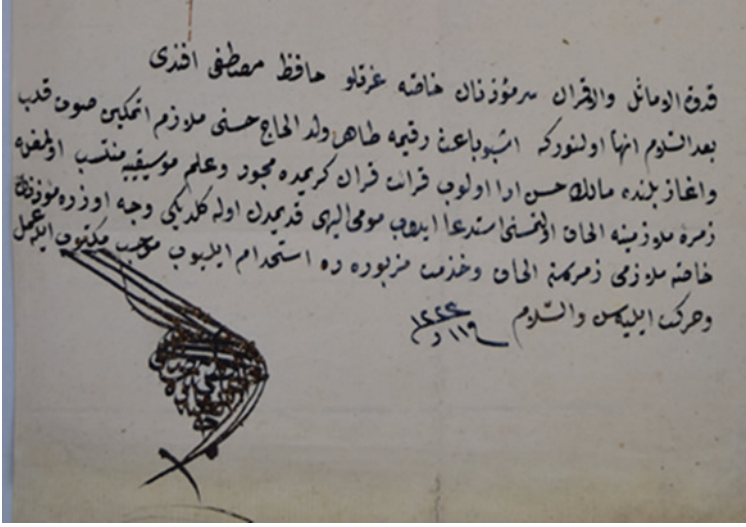 قدوة الاماثل والاقران سر مؤذنان خاصه عزتلو حافظ مصطفى افندى
بعد السلام انها اولنور كه اشبو باعث رقيمه طاهر ولد الحاج حسنى ملازم اتمكين صوت قلب
واغاز بلنده مالك حسن ادا اولوب قرائت قران كريمده مجود وعلم موسيقيه منتسب اولمغله
زمره ملازمينه الحاق اولنمسنى استدعا ايدوب مومى اليهى قديمدن اوله كلديكى وجه اوزره مؤذنان
خاصه ملازمى زمره سنه الحاق وخدمت مزبوره ده استخدام ايليوب موجب مكتوب ايله عمل
وحركت ايليه سن والسلام